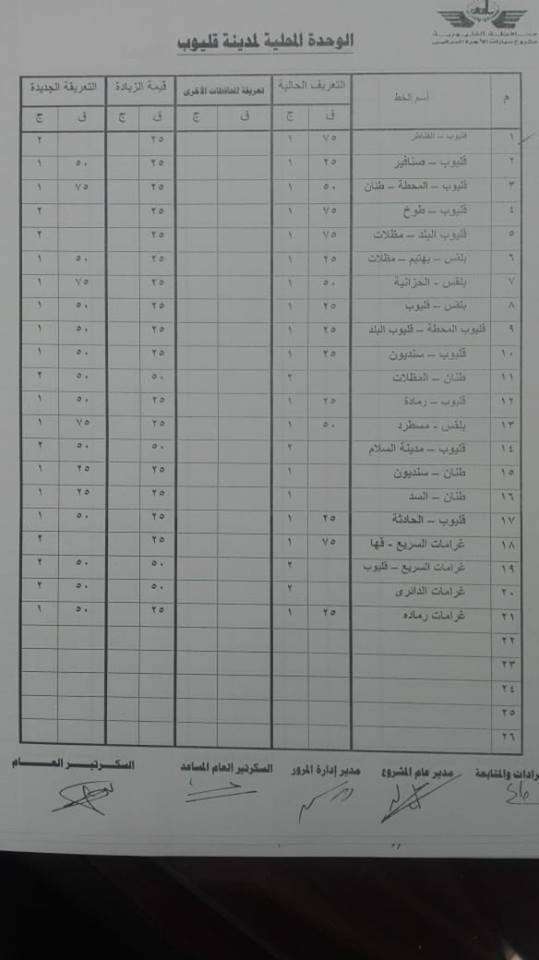 محافظة القليوبية
مشروع سيارات الأجرة السرفيس
الوحدة المحلية لمدينة قليوب
م أسم الخط التعريف الحالية تعريفة المحافظات الأخرى قيمة الزيادة التعريفة الجديدة
ق ج ق ج ق ج ق ج
١ قليوب – القناطر ٧٥ ١ ٢٥ ٢
٢ قليوب – صنافير ٢٥ ١ ٢٥ ٥٠ ١
٣ قليوب – المحطة – طنان ٥٠ ١ ٢٥ ٧٥ ١
٤ قليوب – طوخ ٧٥ ١ ٢٥ ٢
٥ قليوب البلد – مظلات ٧٥ ١ ٢٥ ٢
٦ بلقس – بهتيم – مظلات ٢٥ ١ ٢٥ ٥٠ ١
٧ بلقس - الخزانية ٥٠ ١ ٢٥ ٧٥ ١
٨ بلقس – قليوب ٢٥ ١ ٢٥ ٥٠ ١
٩ قليوب المحطة – قليوب البلد ٢٥ ١ ٢٥ ٥٠ ١
١٠ قليوب – سنديون ٢٥ ١ ٢٥ ٥٠ ١
١١ طنان – المظلات ٢ ٥٠ ٥٠ ٢
١٢ قليوب – رمادة ٢٥ ١ ٢٥ ٥٠ ١
١٣ بلقس – مسطرد ٥٠ ١ ٢٥ ٧٥ ١
١٤ قليوب – مدينة السلام ٢ ٥٠ ٥٠ ٢
١٥ طنان – سنديون ١ ٢٥ ٢٥ ١
١٦ طنان – السد ١ ٢٥ ٢٥ ١
١٧ قليوب – الحادثة ٢٥ ١ ٢٥ ٥٠ ١
١٨ غرامات السريع - قها ٧٥ ١ ٢٥ ٢
١٩ غرامات السريع – قليوب ٢ ٥٠ ٥٠ ٢
٢٠ غرامات الدائرى ٢ ٥٠ ٥٠ ٢
٢١ غرامات رماده ٢٥ ١ ٢٥ ٥٠ ١
٢٢
٢٣
٢٤
٢٥
٢٦
والمتابعة مدير عام المشروع مدير إدارة المرور السكرتير العام المساعد السكرتير العام